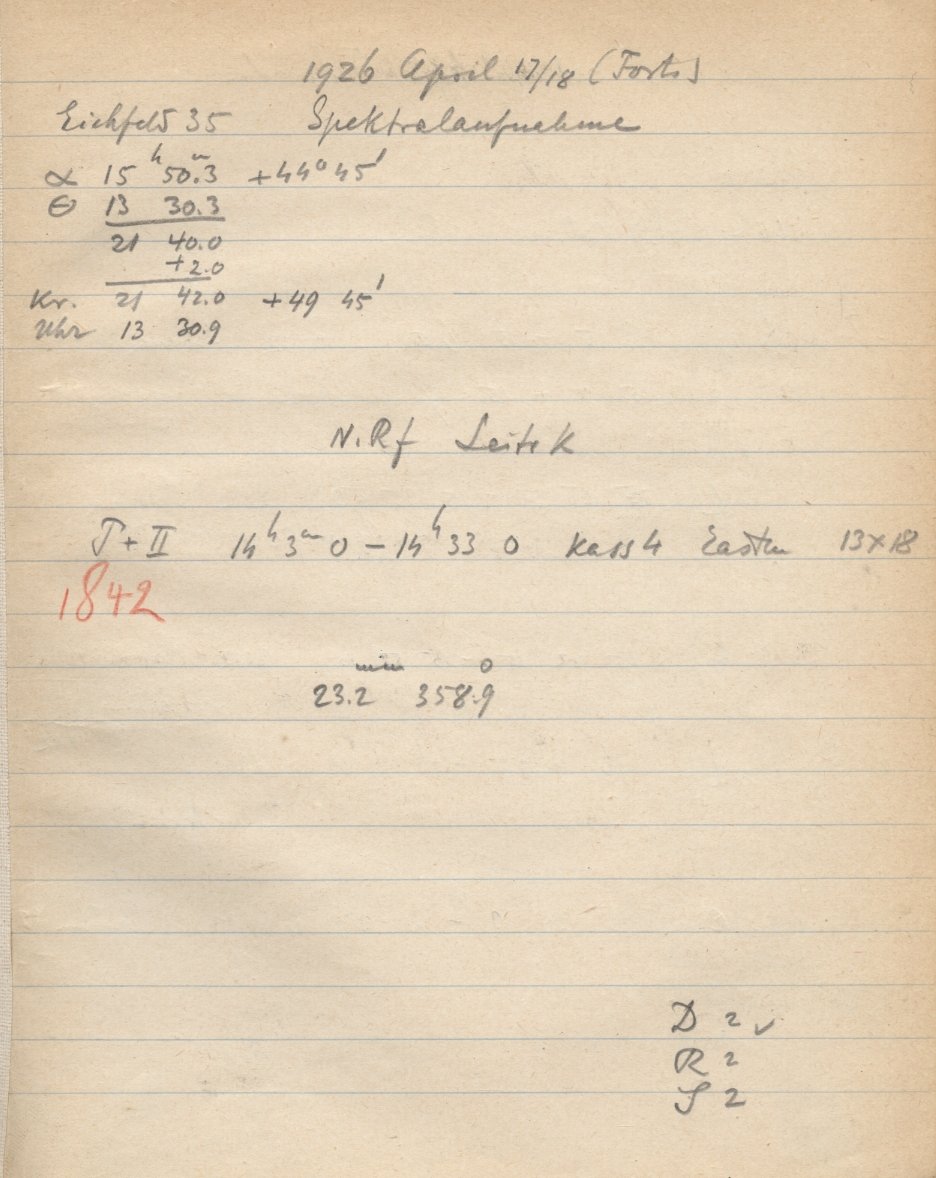 1926 April 17/18 (Forts)
Eichfeld 35 Spektralaufnahme
α 15 h 50.3 m +44° 45'
Θ 13 30.3
21 40.0
+2.0
Kr. 21 42.0 +49 45'
Uhr 13 30.9
N. Rf Leitr K
T + II 14 h 3 m 0 – 14 h 33 0 Kass 4 Eastm 13×18
1842
mm °
23.2 358.9
D 2 ✓
R 2
S 2